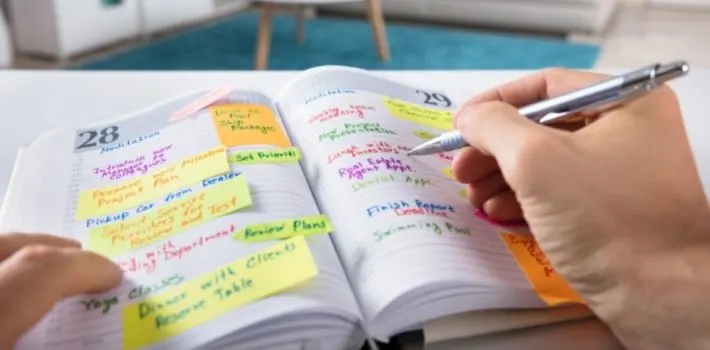 28
Meditation
Introduce new
Manager to
colleagues
Post
Ship
Packages
Prepare new Milestone
Project Plan
Set Prioriti
Pickup Car from Dealer
Select Service
Providers for and Test
Review
with
Department
Review Plans
Yoga Classes
Dinner with Clients
Reserve Table
29
Meditation
Weekly team
meeting
New Project
Presentation
Lunch with new
Investors
Real Estate
Agent Appt.
Dentist Appt.
Finish Report
Deadline
Swimming Pool